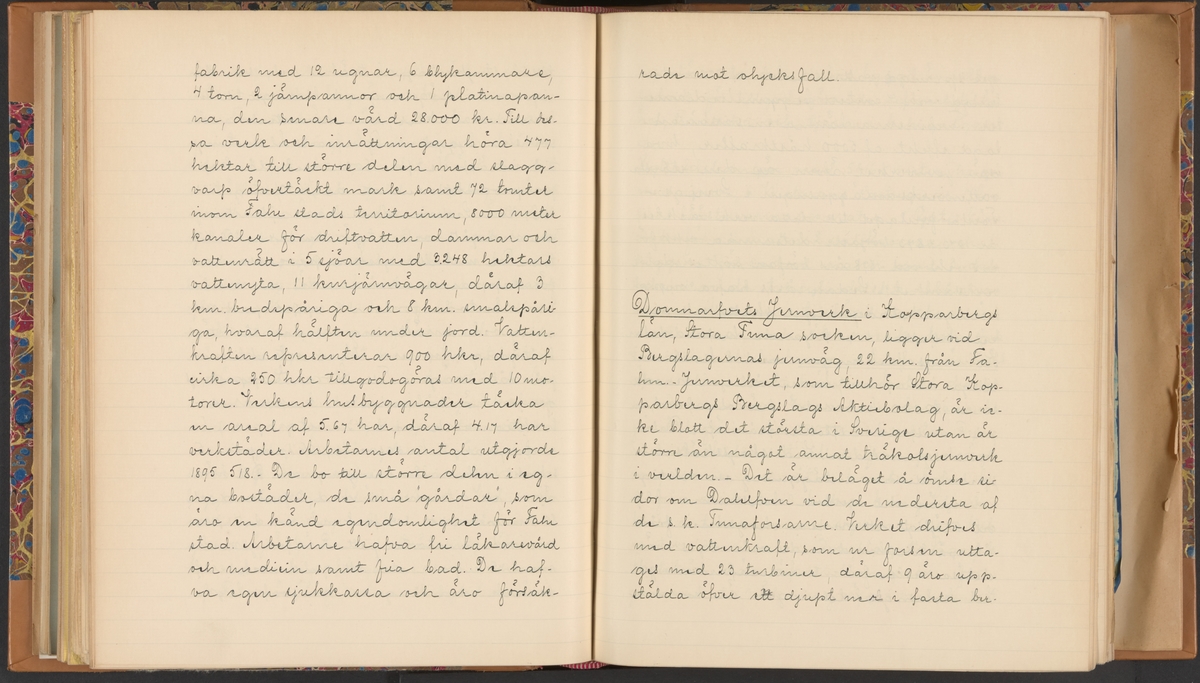 fabrik med 12 ugnar, 6 blykammare,
4 torn, 2 järnpannor och 1 platinapan-
na, den senare värd 28.000 kr. Till des-
sa verk och inrättningar höra 477
hektar till större delen med slagg-
varp öfvertäckt mark samt 72 tomter
inom Falu stads territorium, 8000 meter
kanaler för driftvatten, dammar och
vattenrätt i 5 sjöar med 3,248 hektars
vattenyta, 11 km järnvägar, däraf 3
km. bredspåriga och 8 km. smalspåri-
ga, hvaraf hälften under jord. Vatten-
kraften representerar 900 hkr, däraf
cirka 250 hkr tillgodogöras med 10 mo-
torer. Verkens husbyggnader täcka
en areal af 5.67 har, däraf 4.17 har
verkstäder. Arbetarnes antal utgjorde
1895 518. - De bo till större delen i eg-
na bostäder, de små 'gårdar', som
äro en känd egendomlighet för Falu
stad. Arbetarne hafva fri läkarevård
och medicin samt fria bad. De haf-
va egen sjukkassa och äro försäk-
rade mot olycksfall.
Domnarfvets Jernverk i Kopparbergs
län, Stora Tuna socken, ligger vid
Bergslagernas jernväg, 22 km. från Fa-
lun. - Jernverket, som tillhör Stora Kop-
parbergs Bergslags Aktiebolag, är ic-
ke blott det största i Sverige utan är
större än något annat träkolsjernverk
i verlden. - Det är beläget å ömse si-
dor om Dalelfven vid de nedersta af
de s. k. Tunaforsarne. Verket drifves
med vattenkraft, som ur forsen utta-
ges med 23 turbiner, däraf 9 äro upp-
stälda öfver ett djupt ner i fasta ber-